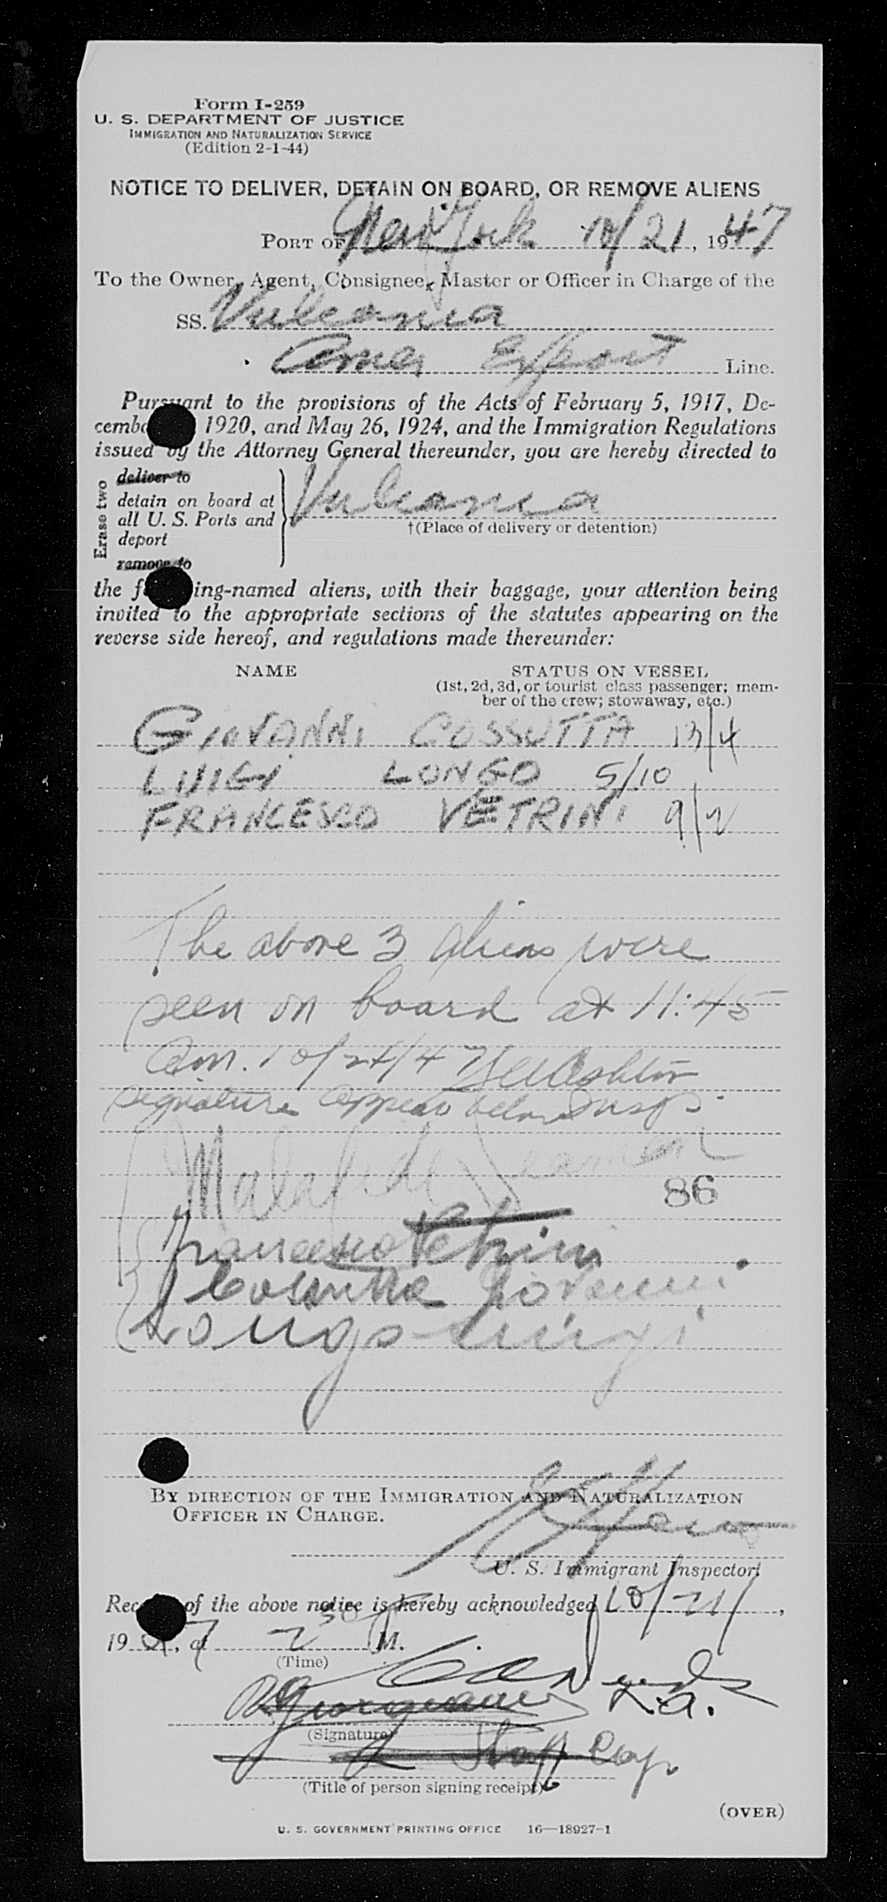 Form I-259
U. S. DEPARTMENT OF JUSTICE
IMMIGRATION AND NATURALIZATION SERVICE
(Edition 2-1-44)
NOTICE TO DELIVER, DETAIN ON BOARD, OR REMOVE ALIENS
PORT OF New York 10/21, 1947
To the Owner, Agent, Consignee, Master or Officer in Charge of the
SS. Vulcania
Amer Export Line.
Pursuant to the provisions of the Acts of February 5, 1917, De-
cemb 1920, and May 26, 1924, and the Immigration Regulations
issued by the Attorney General thereunder, you are hereby directed to
Erase two
deliver to
detain on board at
all U. S. Ports and
deport
remove to
Vulcania
†(Place of delivery or detention)
the f ing-named aliens, with their baggage, your attention being
invited to the appropriate sections of the statutes appearing on the
reverse side hereof, and regulations made thereunder:
NAME STATUS ON VESSEL
(1st, 2d, 3d, or tourist class passenger; mem-
ber of the crew; stowaway, etc.)
GIOVANNI COSSUTTA 13/4
LUIGI LONGO 5/10
FRANCESCO VETRINI 9/2
The above 3 aliens were
seen on board at 11:45
am. 10/24/47
signature appear below Insp.
Malafide Seamen
86
Francesco Vetrini
Cossutta Giovanni
Longo Luigi
BY DIRECTION OF THE IMMIGRATION AND NATURALIZATION
OFFICER IN CHARGE.
U. S. Immigrant Inspector
Rec of the above notice is hereby acknowledged 10/21,
19 47, at 2 30 P M.
(Time)
(Signature)
Staff Cap
(Title of person signing receipt)
(OVER)
U. S. GOVERNMENT PRINTING OFFICE 16—18927-1